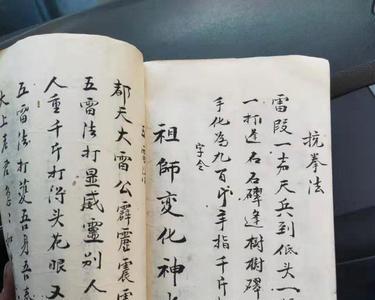 抗拳法
雷段一声天兵到低头一
一打逢石石碑逢樹樹碑
手化為九百斤手指千斤
字令
祖師變化神
都天大雷公霹靂震
五雷法打显威靈别人
人重千斤打得头花眼又
五雷法打護吾身吾
太上老君急